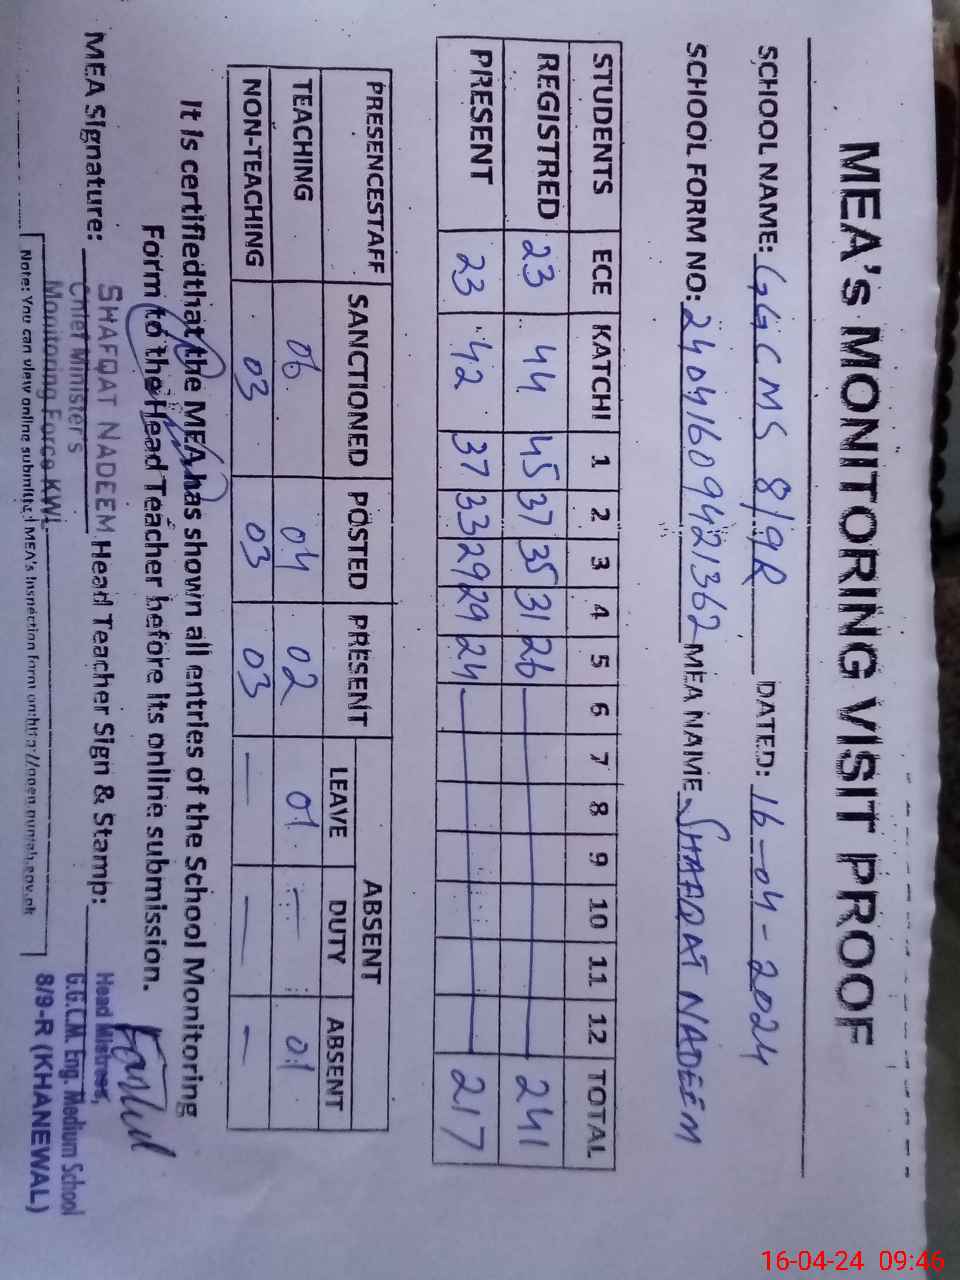 MEA's MONITORING VISIT PROOF
SCHOOL NAME: GGCMS 8/9R DATED: 16-04-2024
SCHOOL FORM NO: 24041609421362 MEA NAME SHAFQAT NADEEM
STUDENTS ECE KATCHI 1 2 3 4 5 6 7 8 9 10 11 12 TOTAL
REGISTRED 23 44 45 37 35 31 26 241
PRESENT 23 42 37 33 29 29 24 217
PRESENCESTAFF SANCTIONED POSTED PRESENT ABSENT
LEAVE DUTY ABSENT
TEACHING 06 04 02 01 - 01
NON-TEACHING 03 03 03 - - -
It is certifiedthat the MEA has shown all entries of the School Monitoring
Form to the Head Teacher before its online submission.
MEA Signature: Head Teacher Sign & Stamp:
SHAFQAT NADEEM
Chief Minister's
Monitoring Force KWL
Head Mistress,
G.G.C.M. Eng. Medium School
8/9-R (KHANEWAL)
Note: You can view online submitted MEA's Inspection form on:
16-04-24 09:46